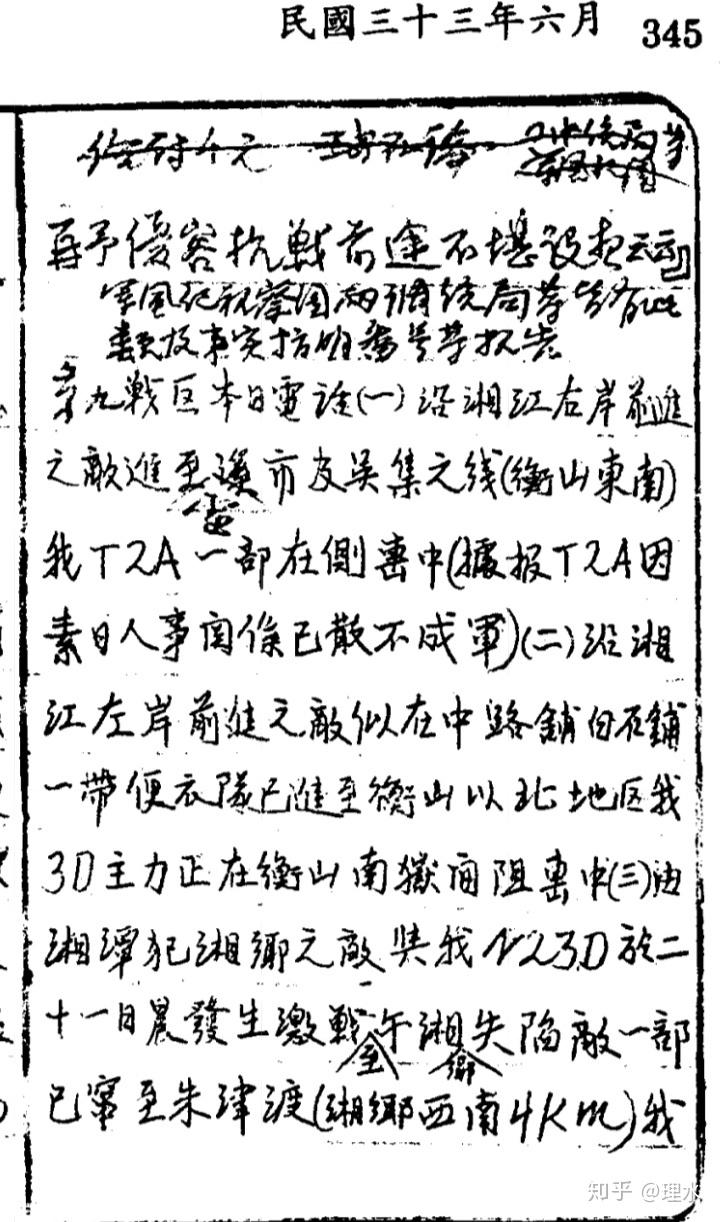 民國三十三年六月 345
再予優容抗戰前途不堪設想云云」
軍風紀視察團兩調統局等皆有此
類及事实指明番号等报告
第九戰区本日電話(一)沿湘江右岸前進
之敵進至霞市及吴集之线(衡山東南)
我T2A一部在側击中(據报T2A因
素日人事関係已散不成軍)(二)沿湘
江左岸前進之敵似在中路鋪白石鋪
一帶便衣隊已進至衡山以北地区我
3D主力正在衡山南嶽间阻击中(三)由
湘潭犯湘鄉之敵與我N23D於二
十一日晨發生激戰至午湘鄉失陷敵一部
已竄至朱津渡(湘鄉西南4Km)我
知乎 @理水